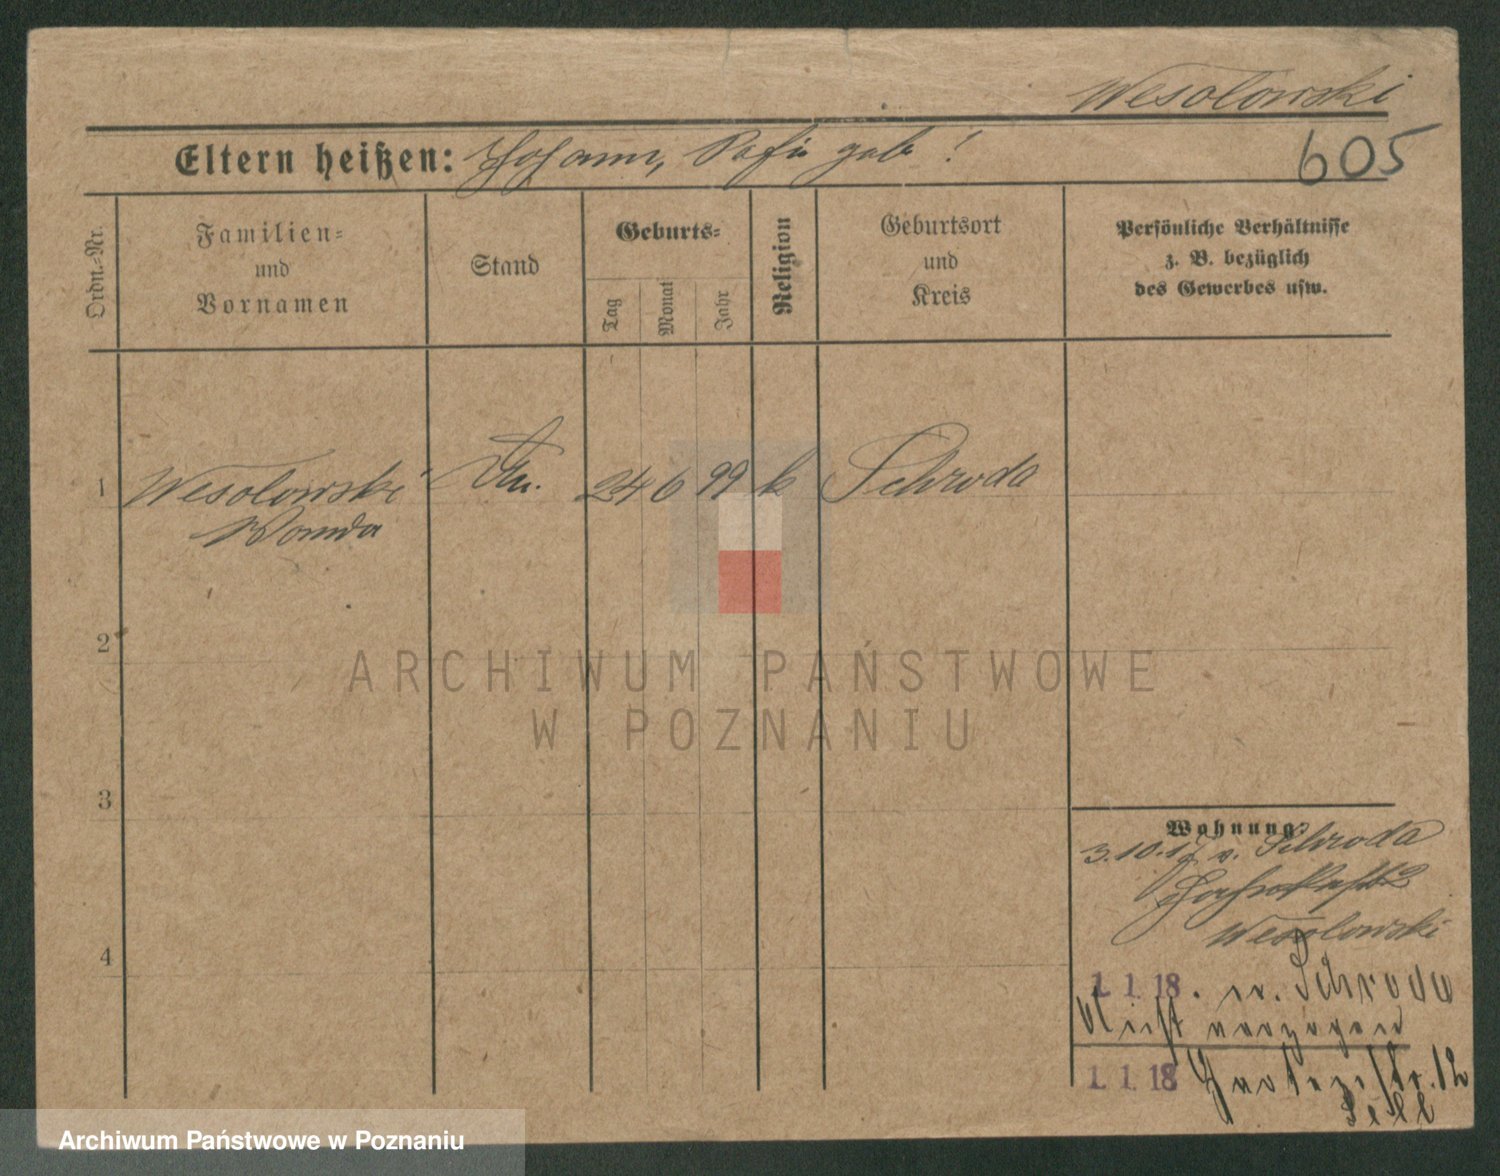 Wesolowski
605
Eltern heißen: Johann, geb !
Ordn.-Nr.
Familien-
und
Vornamen
Stand
Geburts-
Tag
Monat
Jahr
Religion
Geburtsort
und
Kreis
Persönliche Verhältnisse
z. B. bezüglich
des Gewerbes usw.
1 Wesolowski 24 6 99 k Schroda
Wanda
2
3
4
Wohnung:
3.10.17 v. Schroda
Wesolowski
1. 1. 18. n. Schroda
verzogen
1. 1. 18 12
ARCHIWUM PAŃSTWOWE
W POZNANIU
Archiwum Państwowe w Poznaniu